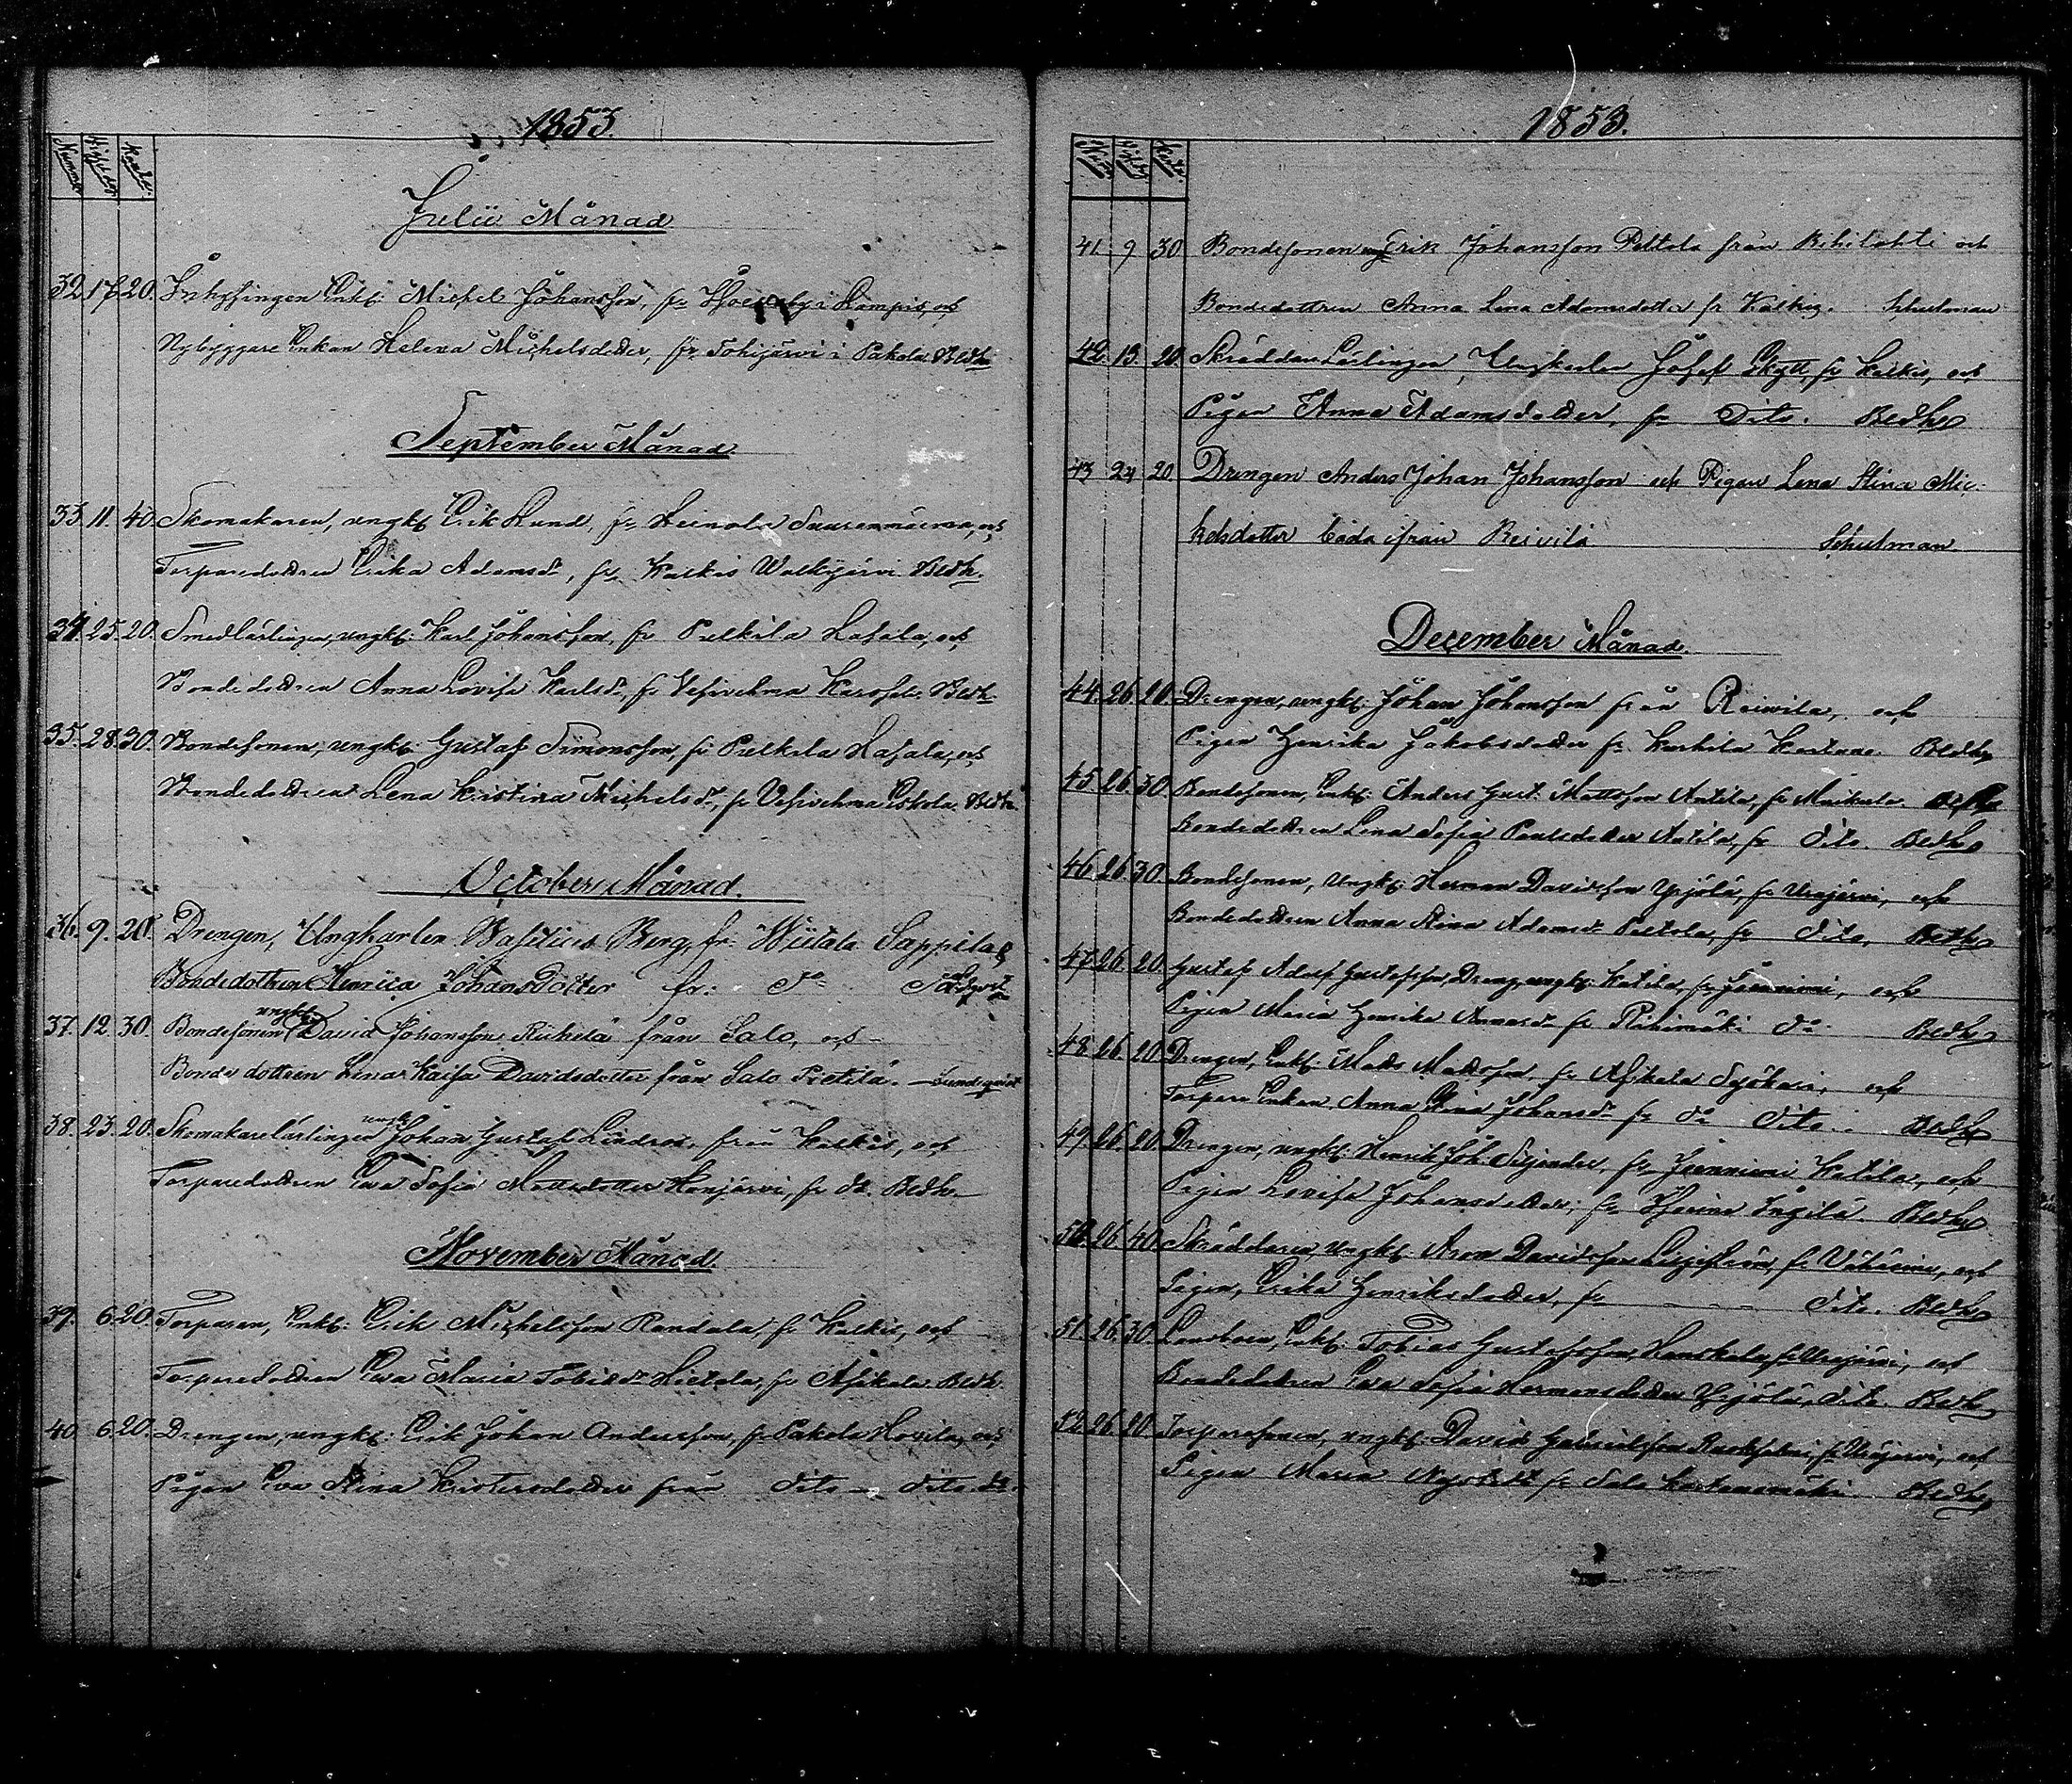 1853.
Nummer Vigsel dag Kåcla.
Julii Månad
32. 17. 20. Inhysingen Enkl: Michel Johansson, fr och
Nybyggare Enkan Helena Michelsdotter, fr. Tohijärvi i Pakola Bedh.
September Månad
33. 11. 40. Skomakaren, ungk: Erik Lund, fr Heinola och
Torparedottren Erika Adamsdr, fr Kalkis Walkjärvi. Bedh.
34. 25. 20. Smedlärlingen, ungk: Karl Johansson, fr Pulkila Hasala, och
Bondedottren Anna Lovisa Karlsdr, fr Vesivehma Bedh.
35. 28. 30. Bondesonen, ungk: Gustaf Simonsson, fr Pulkila Hasala, och
Bondedottren Lena Kristina Michelsdr, fr Vesivehma Eskola. Bedh.
October Månad.
36. 9. 20. Drengen, Ungkarlen Basilius Berg, fr. Wiitala Seppilä &
Bondedottren Henrica Johansdotter fr: do
37. 12. 30. Bondesonen ungk: David Johansson Riihelä från Salo, och
Bondedottren Lena Kaisa Davidsdotter från Salo Pietilä. Lundqvist
38. 23. 20. Skomakarelärlingen ungk: Johan Gustaf Lindros, från Kalkis, och
Torparedottren Eva Sofia Mattsdotter Hanjärvi, fr do. Bedh.
November Månad.
39. 6. 20. Torparen, Enkl: Erik Michelsson Randala, fr Kalkis, och
Torparedottren Eva Maria Tobiasdr Hietala, fr Asikala Bedh.
40. 6. 20. Drengen, ungk: Erik Johan Andersson, fr Pakola Hovila, och
Pigan Eva Stina Kristersdotter från dito dito
1853.
41. 9 30 Bondesonen ung Erik Johansson Peltola från Rihilahti och
Bondedottren Anna Lena Adamsdotter fr Kalkis. Schulman
42. 13. 20. Skräddare Lärlingen, Ungkarlen Josef Skytt, fr Kalkis, och
Pigan Anna Adamsdotter, fr Dito. Bedh
43 24 20 Drengen Anders Johan Johansson och Pigan Lena Stina Mic-
kelsdotter båda ifrån Reivilä Schulman
December Månad
44. 26. 20. Drengen, ungk: Johan Johansson från Reivilä, och
Pigan Henrika Jakobsdotter fr. Karhila Bedh
45. 26. 30 Bondesonen, Enkl: Anders Gust: Mattsson Antila, fr Maikala
Bondedottren Lena Sofia Paulsdotter Antila, fr dito. Bedh
46. 26. 30 Bondesonen, Ungk: Herman Davidsson Yrjölä, fr Urajärvi, och
Bondedottren Anna Stina Adamsdr Pietola, fr dito. Bedh
47. 26. 20. Gustaf Adolf Gustafsson, Dreng, ungk: Katila, fr och
Pigan Maria Henrika Annasdr fr Riihimäki do Bedh
48. 26. 20. Drengen, Enkl: Matts Mattsson, fr Asikala Syökari, och
Torpare Enkan Anna Stina Johansdr fr do dito. Bedh
49. 26. 20. Drengen, ungk: Henrik Joh: Silfjander, fr Katila, och
Pigan Lovisa Johansdotter, fr Ingilä. Bedh
50. 26. 40. Skräddaren, ungk: Aron Davidsson Liljeström, fr Vähäimi, och
Pigan, Erika Henriksdotter, fr dito. Bedh
51. 26. 30. Landboen, Enkl: Tobias Gustafsson Hanskala, fr Urajärvi, och
Bondedottren Eva Sofia Hermansdotter Yrjölä, dito. Bedh
52. 26. 20. Torparesonen, ungk: David Gabrielsson fr Urajärvi, och
Pigan Maria fr Salo Bedh